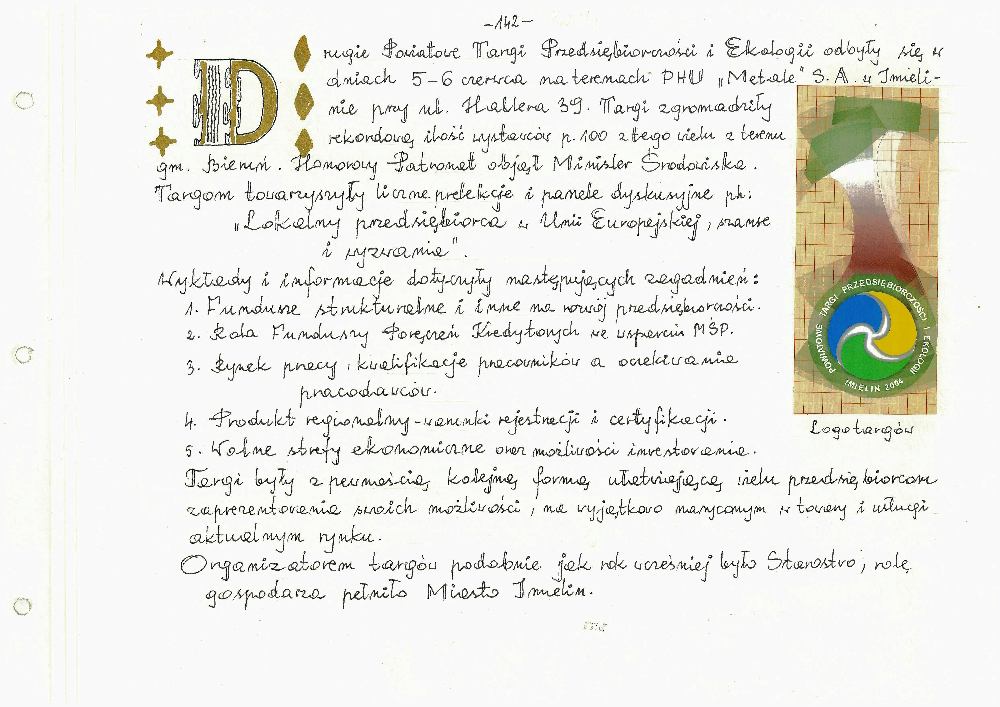 -142-
Drugie Powiatowe Targi Przedsiębiorczości i Ekologii odbyły się w
dniach 5-6 czerwca na terenach PHU „Metale" S.A. w Imieli-
nie przy ul. Hallera 39. Targi zgromadziły
rekordową ilość wystawców p. 100 z tego wielu z terenu
gm. Bieruń. Honorowy Patronat objął Minister Środowiska.
Targom towarzyszyły liczne prelekcje i panele dyskusyjne pt:
„Lokalny przedsiębiorca w Unii Europejskiej, szanse
i wyzwania".
Wykłady i informacje dotyczyły następujących zagadnień:
1. Fundusze strukturalne i inne na rozwój przedsiębiorczości.
2. Rola Funduszy Poręczeń Kredytowych we wsparciu MŚP.
3. Rynek pracy, kwalifikacje pracowników a oczekiwania
pracodawców.
4. Produkt regionalny-warunki rejestracji i certyfikacji.
5. Wolne strefy ekonomiczne oraz możliwości inwestowania.
Targi były z pewnością kolejną formą ułatwiającą wielu przedsiębiorcom
zaprezentowania swoich możliwości, na wyjątkowo nasyconym w towary i usługi
aktualnym rynku.
Organizatorem targów podobnie jak rok wcześniej było Starostwo, rolę
gospodarza pełniło Miasto Imielin.
POWIATOWE TARGI PRZEDSIĘBIORCZOŚCI I EKOLOGII
IMIELIN 2004
Logo targów